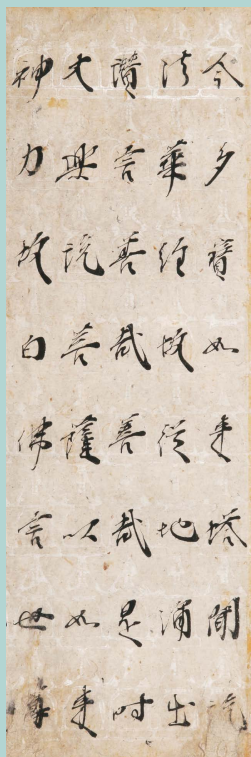 今多寶如来塔聞説
法華經故從地涌出
讃言善哉善哉是時
大樂説菩薩以如来
神力故白佛言世尊